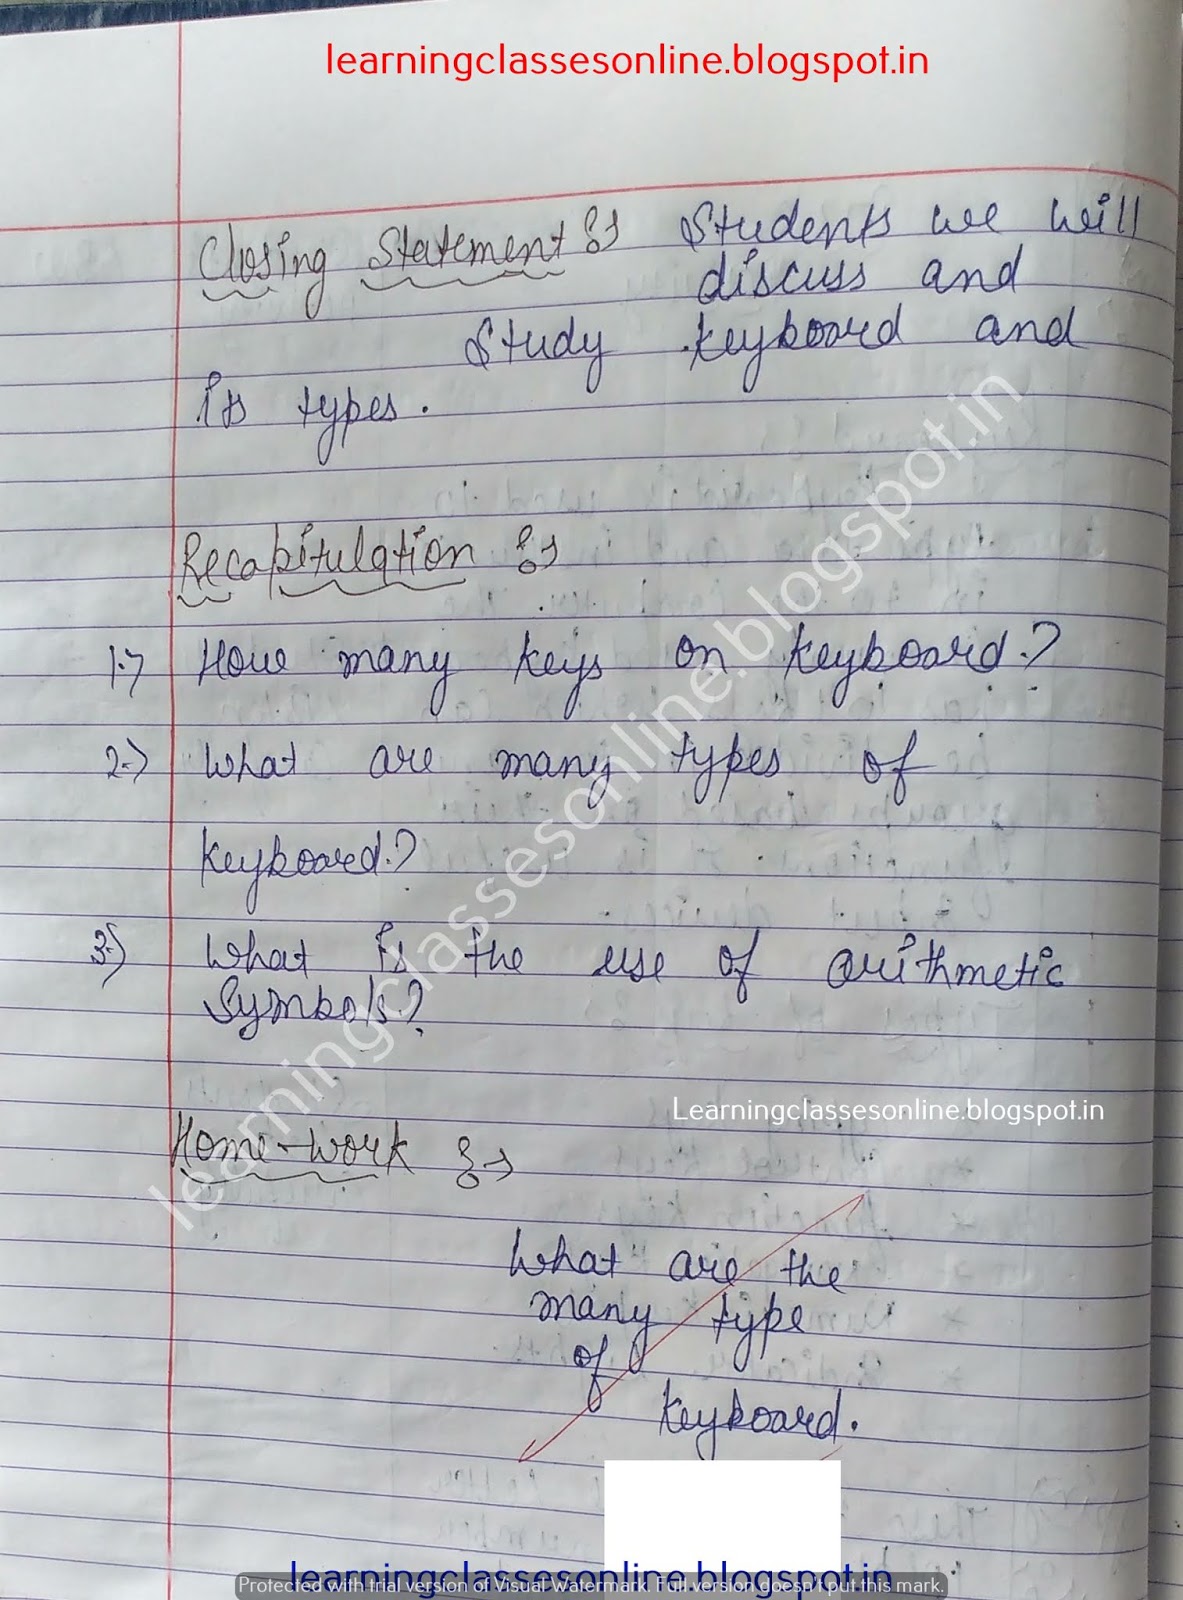 learningclassesonline.blogspot.in
Closing Statement :→ Students we will
discuss and
Study keyboard and
its types.
Recapitulation :→
1.→ How many keys on keyboard.?
2.→ What are many types of
keyboard.?
3.→ What is the use of arithmetic
Symbols.?
Learningclassesonline.blogspot.in
Home-work :→
What are the
many type
of
keyboard.
learningclassesonline.blogspot.in
learningclassesonline.blogspot.in
Protected with trial version of Visual Watermark. Full version doesn't put this mark.